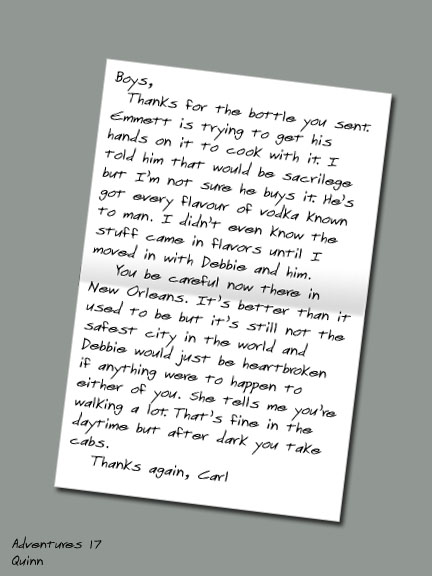 Boys,
Thanks for the bottle you sent.
Emmett is trying to get his
hands on it to cook with it. I
told him that would be sacrilege
but I'm not sure he buys it. He's
got every flavour of vodka known
to man. I didn't even know the
stuff came in flavors until I
moved in with Debbie and him.
You be careful now there in
New Orleans. It's better than it
used to be but it's still not the
safest city in the world and
Debbie would just be heartbroken
if anything were to happen to
either of you. She tells me you're
walking a lot. That's fine in the
daytime but after dark you take
cabs.
Thanks again, Carl
Adventures 17
Quinn